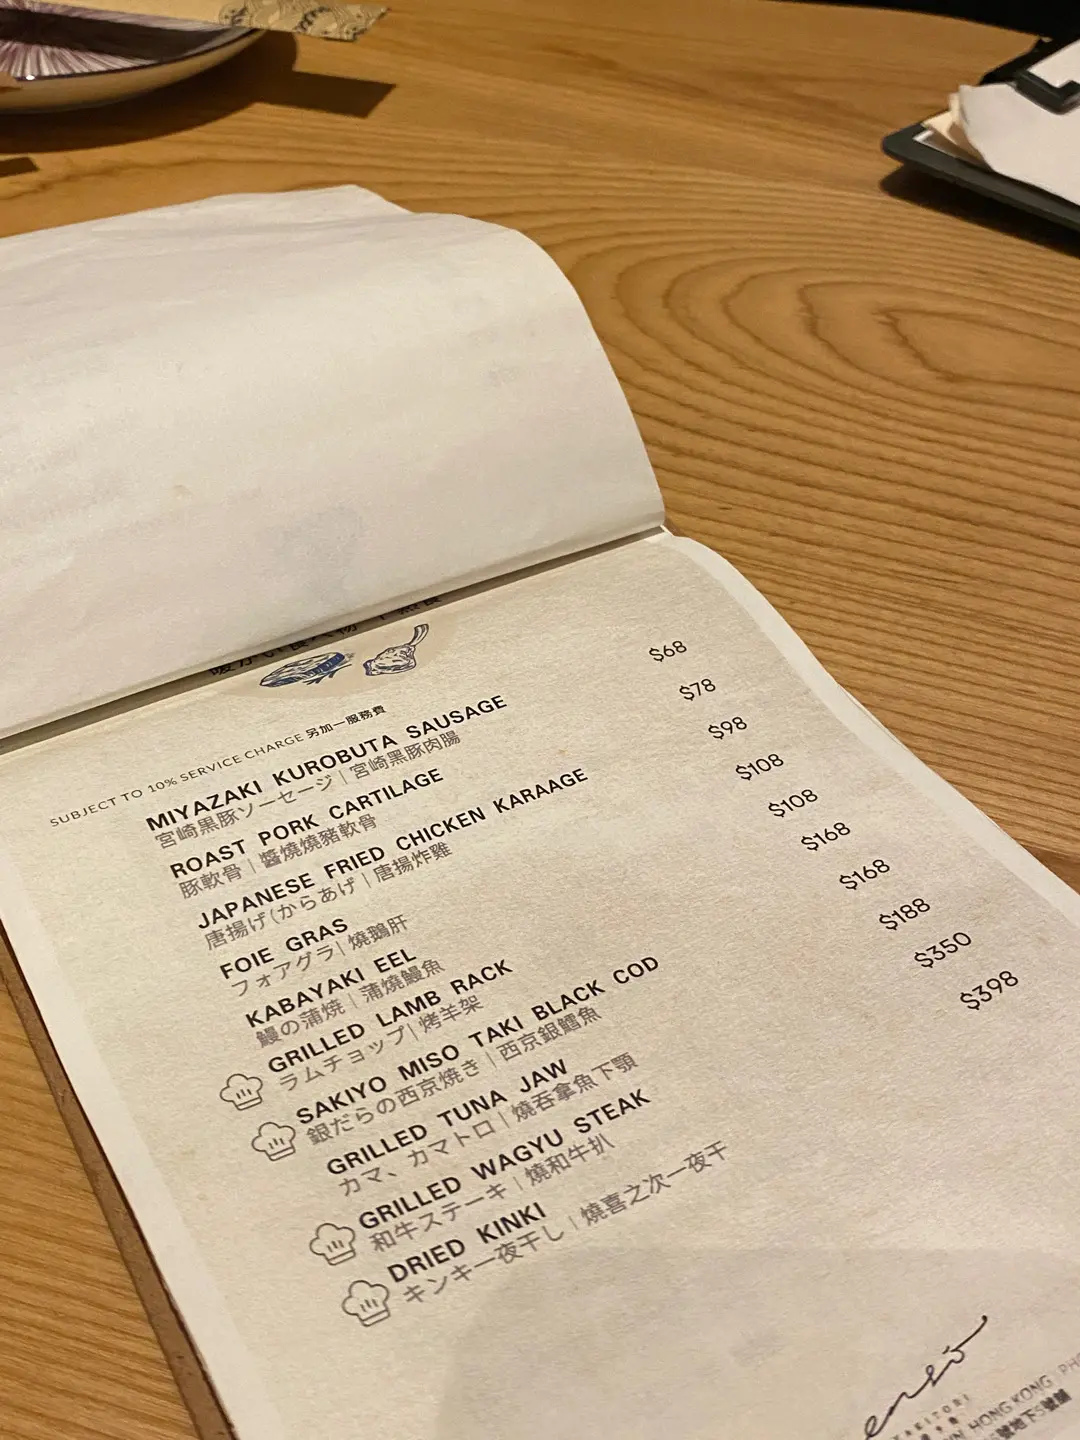 SUBJECT TO 10% SERVICE CHARGE 另加一服務費
MIYAZAKI KUROBUTA SAUSAGE $68
宮崎黒豚ソーセージ | 宮崎黑豚肉腸
ROAST PORK CARTILAGE $78
豚軟骨 | 醬燒燒豬軟骨
JAPANESE FRIED CHICKEN KARAAGE $98
唐揚げ(からあげ | 唐揚炸雞
FOIE GRAS $108
フォアグラ | 燒鵝肝
KABAYAKI EEL $108
鰻の蒲焼 | 蒲燒鰻魚
GRILLED LAMB RACK $168
ラムチョップ | 烤羊架
SAKIYO MISO TAKI BLACK COD $168
銀だらの西京焼き | 西京銀鱈魚
GRILLED TUNA JAW $188
カマ、カマトロ | 燒吞拿魚下顎
GRILLED WAGYU STEAK $350
和牛ステーキ | 燒和牛扒
DRIED KINKI $398
キンキ一夜干し | 燒喜之次一夜干
ensō
HONG KONG
號地下S號舖